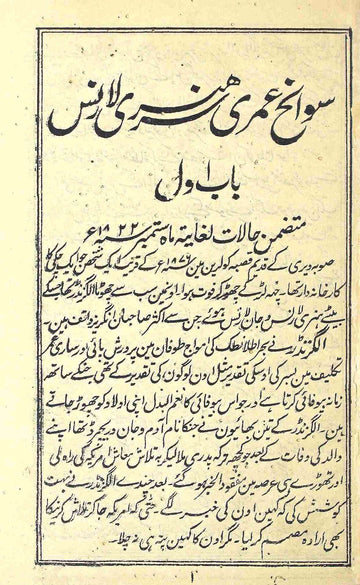 سوانح عمری سر ہنری لارنس
باب اول
متضمن حالات لغایتہ ماہ ستمبر ۱۸۲۲ء
صوبہ ڈیری کے قدیم قصبہ کولرین مین ۱۷۷۶ء کے قریب ایک شخص جو ایک چکی کا
کارخانہ دار تھا۔ چند لڑکے چھوڑ کر فوت ہوا۔ اونمین سب سے چھوٹا الگزنڈر تھا جسکے
بیٹے ہنری لارنس و جان لارنس ہوئے جن سے اکثر صاحبان انگریز واقف ہین۔
الگزنڈر نے بحر اطلانطک کی مواج طوفان مین پرورش پائی اور ساری عمر
تکلیف مین بسر کی اوسکی تقدیر مثل اون لوگون کی تقدیر کے تھی جنکے ساتھ
زمانہ بیوفائی کرتا ہے اور جو اس بیوفائی کا نعم البدل اپنی اولاد کو چھوڑ جاتے
ہین۔ الگزنڈر کے تین بھائیون نے جنکا نام آدم و جان و رچرڈ تھا اپنے
والد کی وفات کے بعد جو کچھ ترکہ پدری ملا لیکر بہ تلاش معاش امریکہ کی راہ لی
اور تھوڑے ہی عرصہ مین مفقود الخبر ہو گئے۔ بعد چندے الگزنڈر نے بہت
کوشش کی کہ کہین اون کی خبر لگے۔ حتی کہ امریکہ جا کر تلاش کرنیکا
بھی ارادہ مصمم کر لیا۔ مگر اون کا کہین پتہ ہی نہ چلا۔
۱